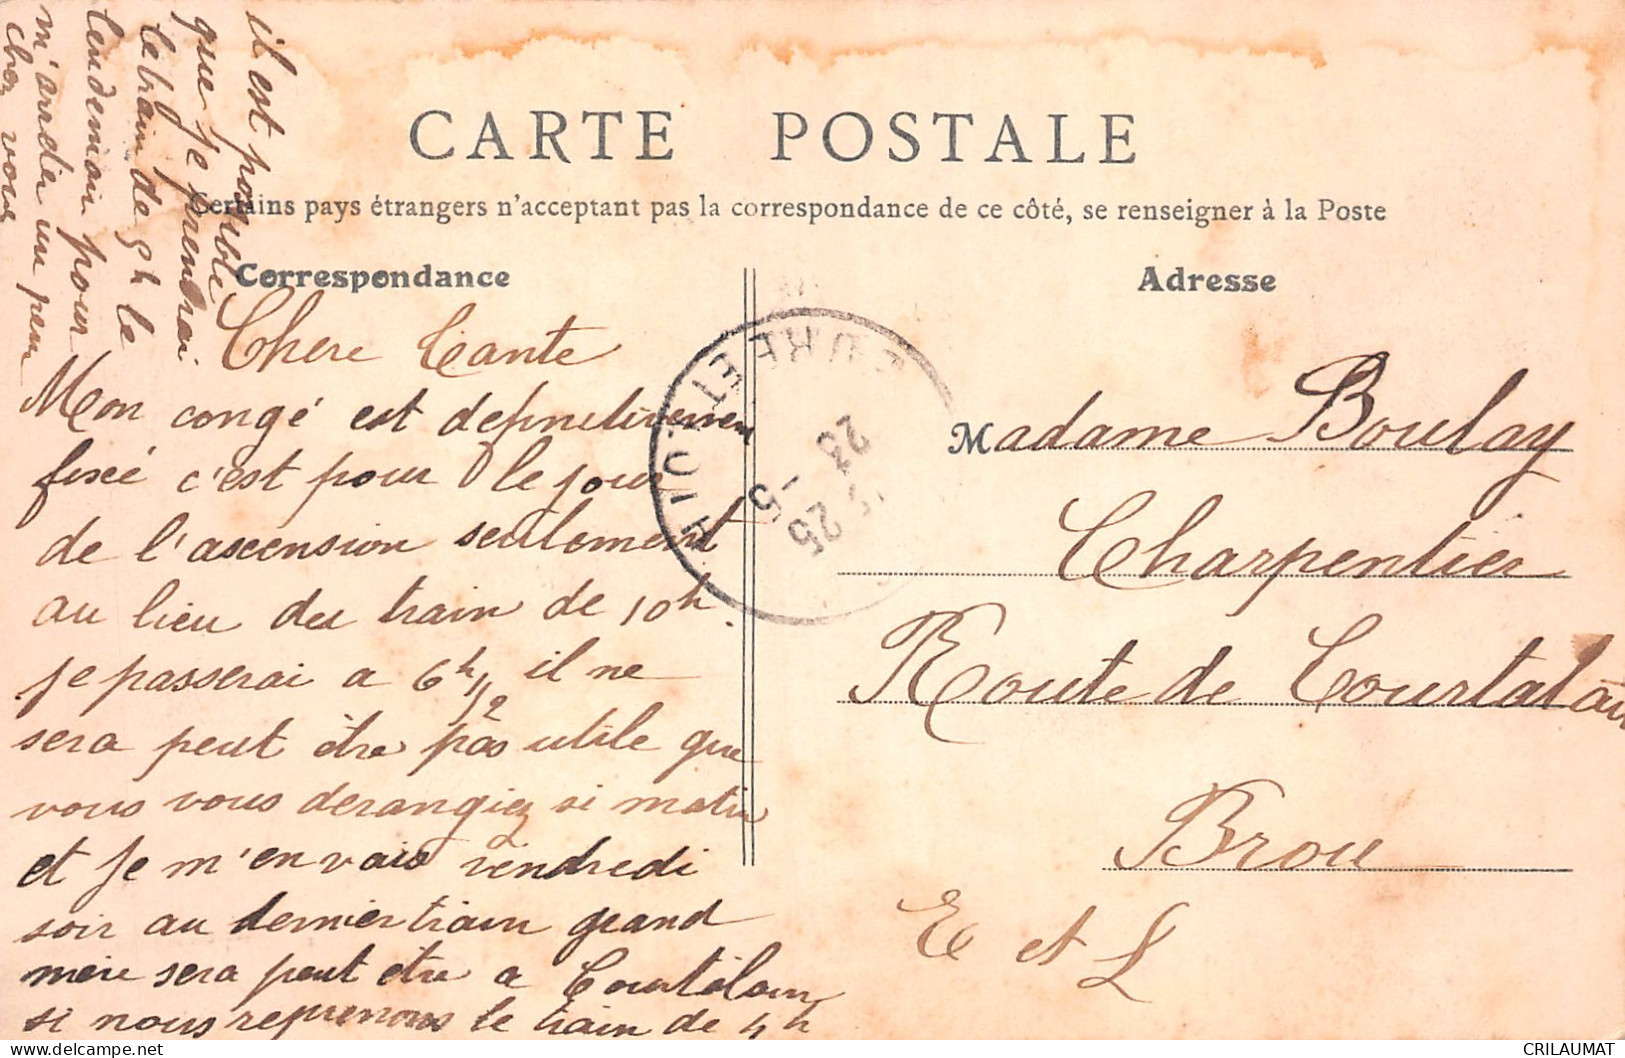 CARTE POSTALE
Certains pays étrangers n'acceptant pas la correspondance de ce côté, se renseigner à la Poste
Correspondance
Chere Tante
Mon congé est definitivemen
fixé c'est pour le jour
de l'ascension seulement
au lieu du train de 10h.
je passerai a 6h1/2 il ne
sera peut être pas utile que
vous vous derangiez si matin
et je m'en vais vendredi
soir au dernier train grand
mère sera peut etre a Courtalain
si nous reprenons le train de 4h
il est possible
que je prendrai
le train de 5h le
lendemain pour
m'arrêter un peu
chez vous
Adresse
Madame Boulay
Charpentier
Route de Courtalain
Brou
E et L
EURE ET
25
23 - 5
CRILAUMAT